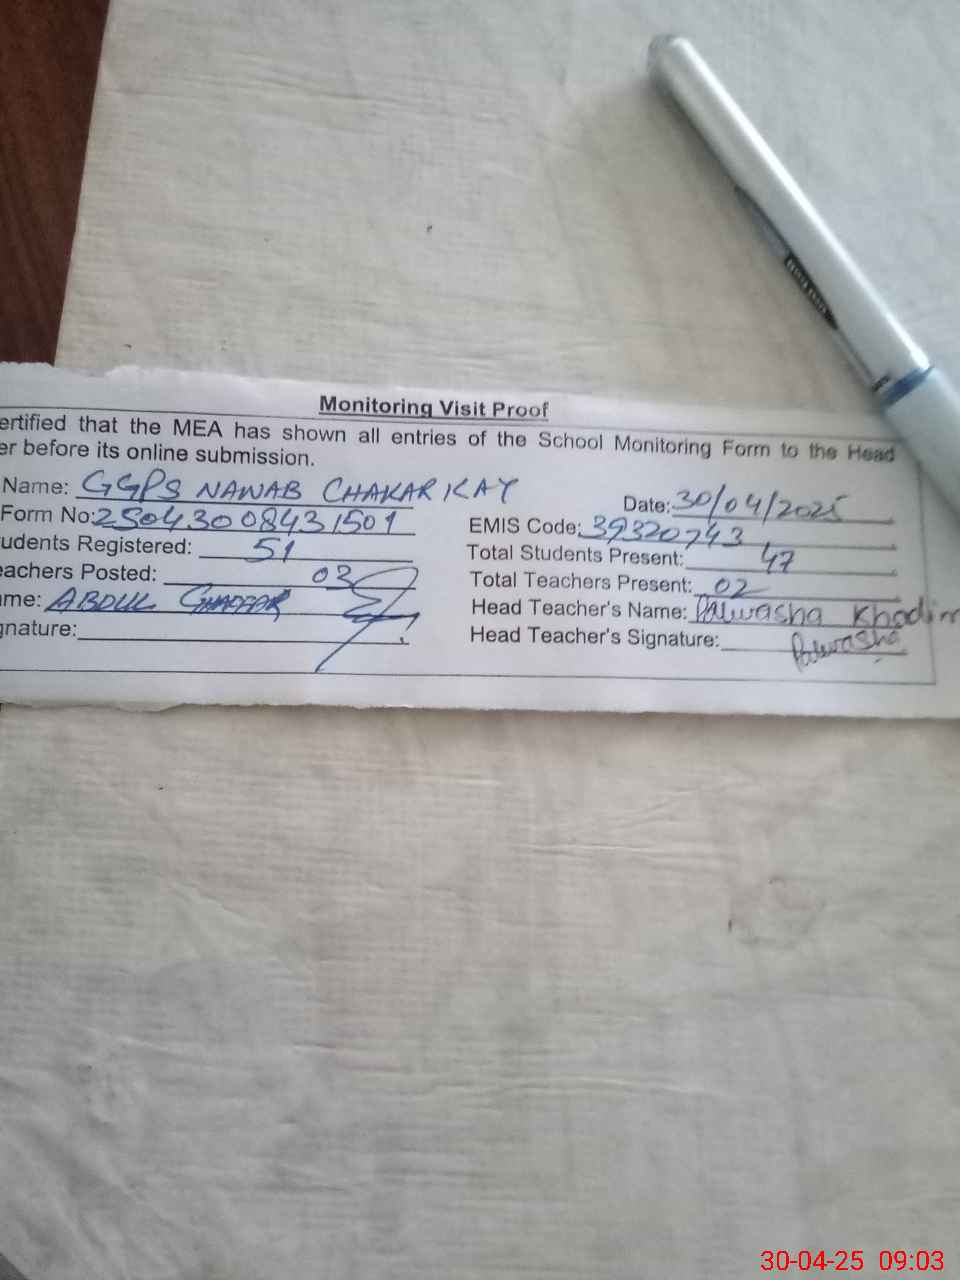 Monitoring Visit Proof
ertified that the MEA has shown all entries of the School Monitoring Form to the Head
er before its online submission.
Name: GGPS NAWAB CHAKAR KAY
Date: 30/04/2025
Form No: 25043008431501
EMIS Code: 39320743
udents Registered: 51
Total Students Present: 47
eachers Posted: 02
Total Teachers Present: 02
ame: ABDUL GHAFFAR
Head Teacher's Name: Palwasha Khadim
gnature:
Head Teacher's Signature: Palwasha
30-04-25 09:03